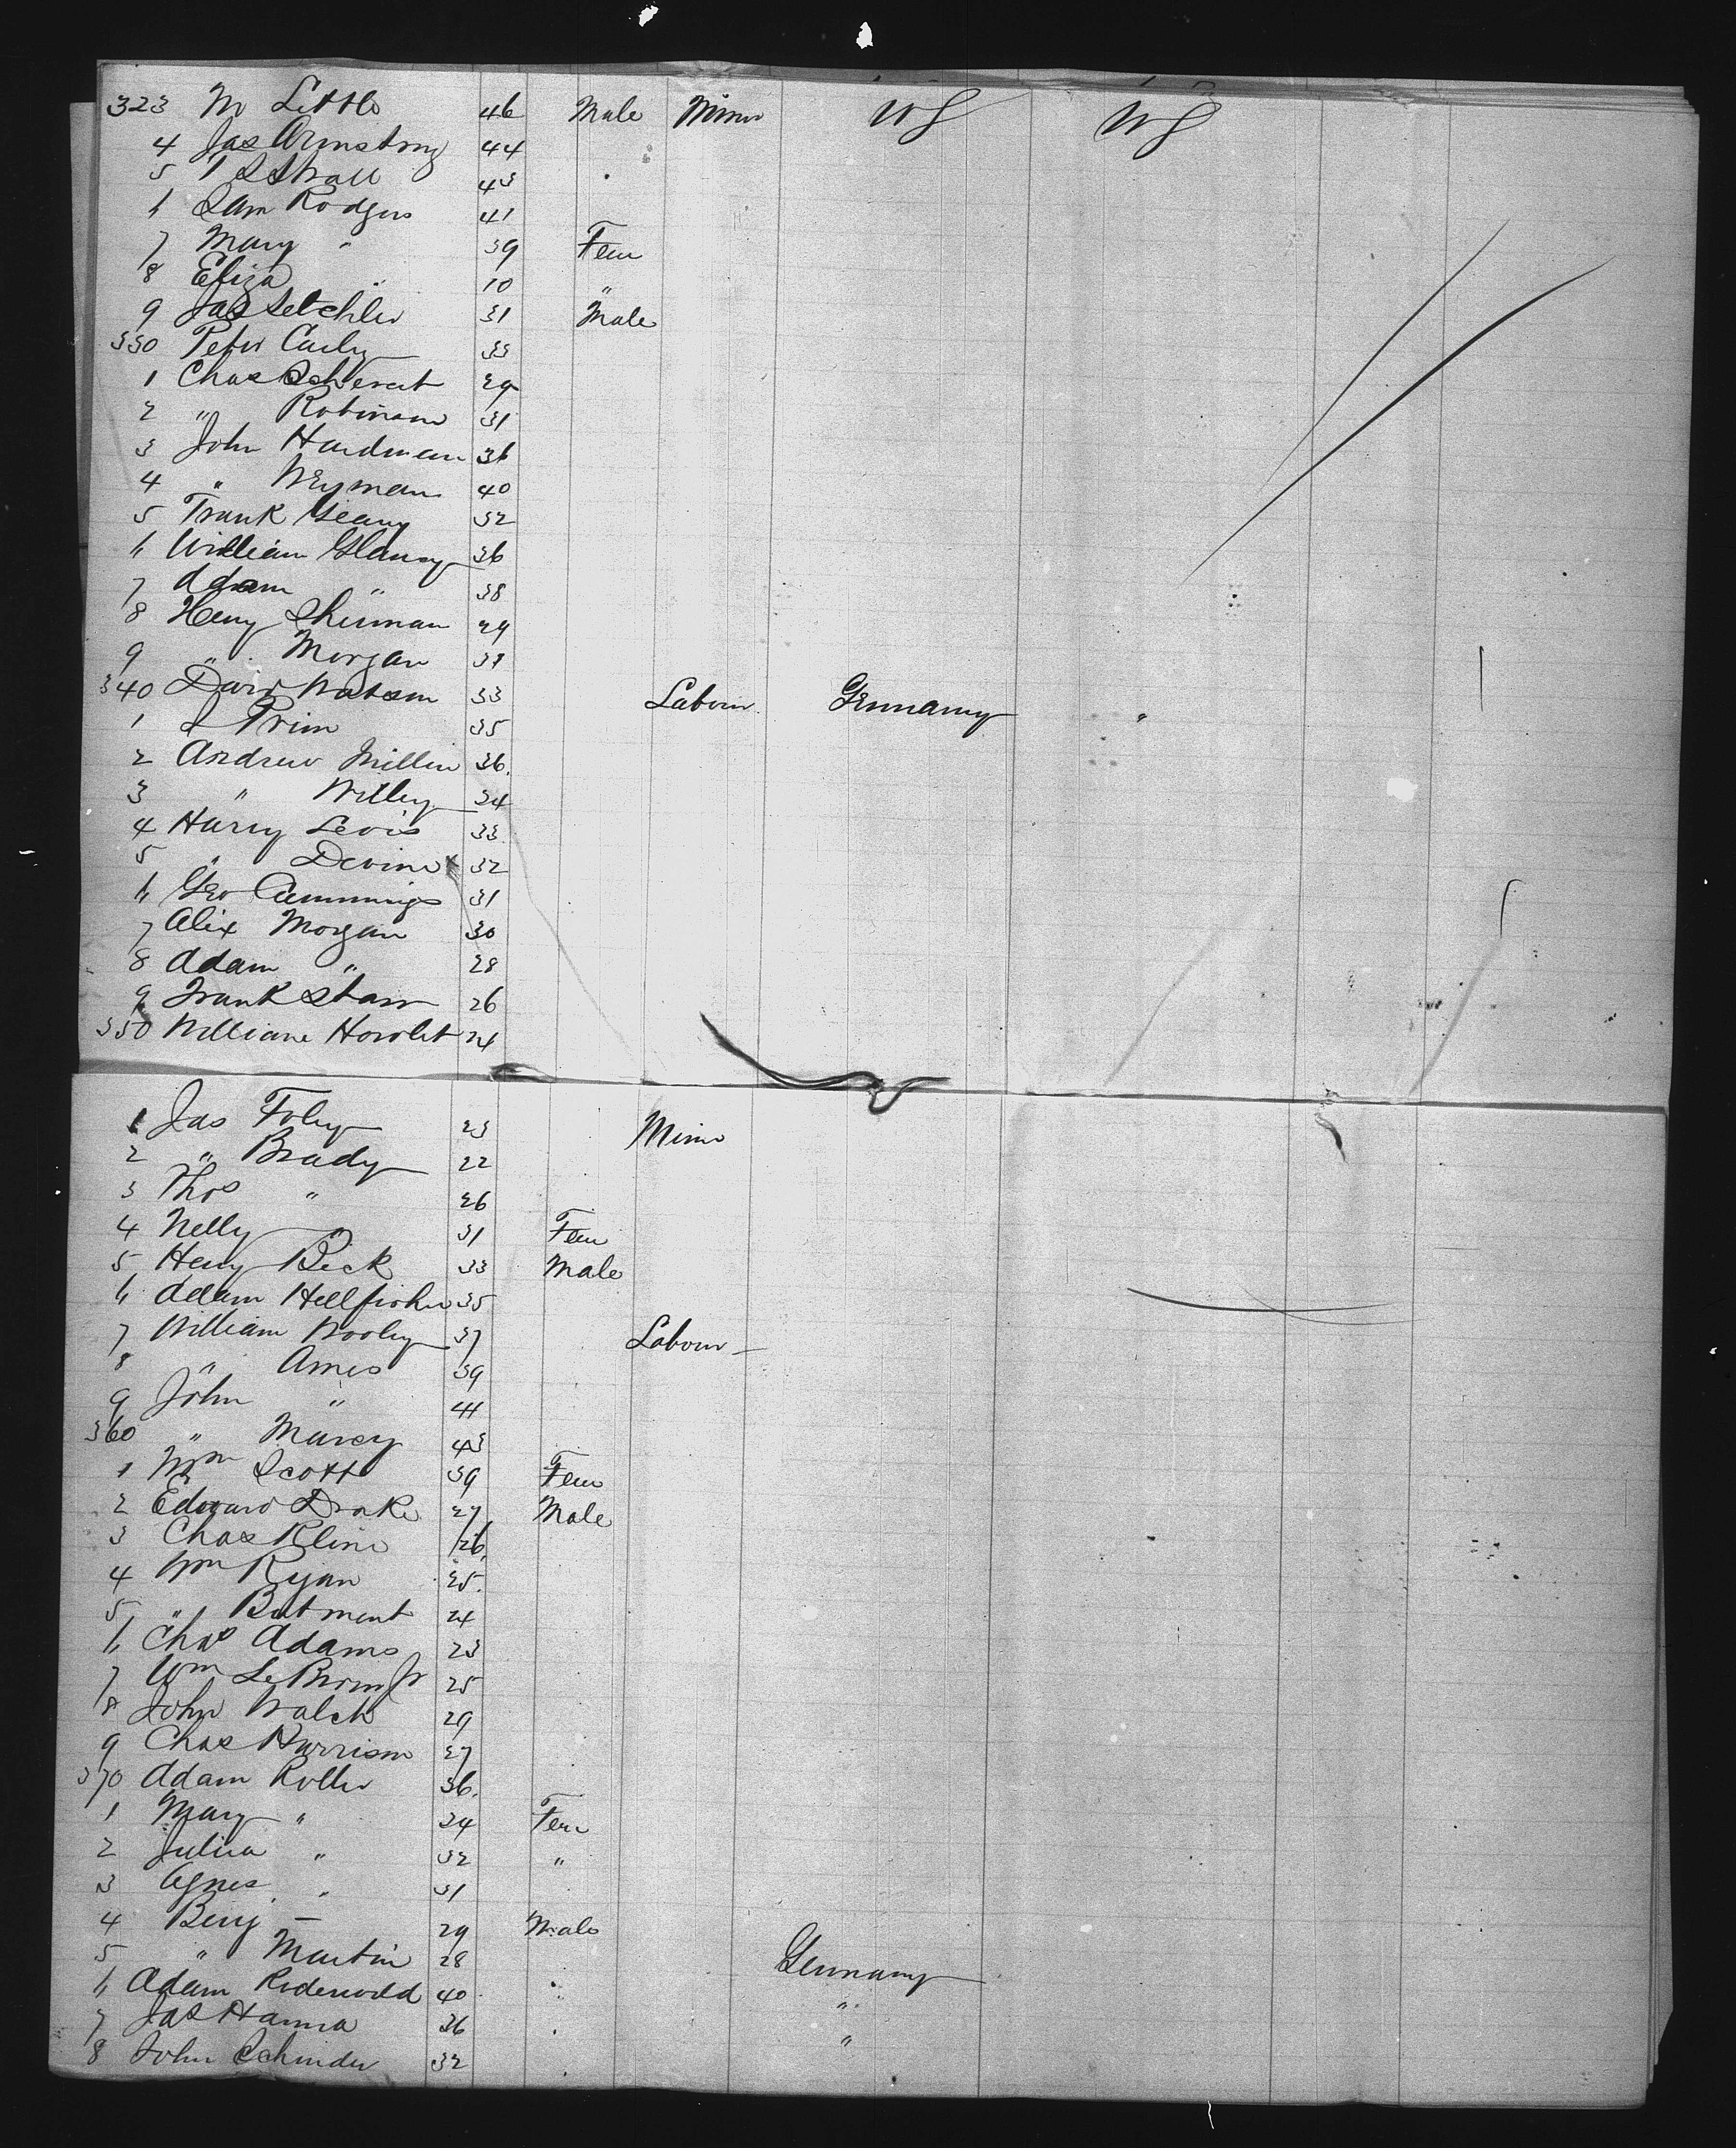 323 M Little 46 Male Miner US US
4 Jas Armstrong 44
5 43
6 Sam Rodgers 41
7 Mary " 39 Fem
8 Eliza " 10 "
9 Jas 31 Male
330 Peter 33
1 Chas 29
2 " Robinson 31
3 John Hardman 36
4 " Weyman 40
5 Frank Geary 32
6 William Glancy 36
7 Adam " 38
8 Henry Sherman 29
9 " Morgan 31
340 David Watson 33 Labour Germany "
1 S Prim 35
2 Andrew Miller 36
3 " Willey 34
4 Harry Levis 33
5 " Devine 32
6 Geo Cummings 31
7 Alex Morgan 30
8 Adam " 28
9 Frank Starr 26
350 William Howlet 24
1 Jas Foley 23 Miner
2 " Brady 22
3 Thos " 26
4 Nelly " 31 Fem
5 Henry Beck 33 Male
6 Adam 35
7 William Wooley 37 Labour
8 " Ames 39
9 John " 41
360 " Marcy 43
1 Scott 39 Fem
2 Edward Drake 27 Male
3 Chas Kline 26
4 Wm Ryan 25
5 " Butment 24
6 Chas Adams 23
7 Wm 25
8 John Walch 29
9 Chas Harrison 27
370 Adam Roller 36
1 Mary " 34 Fem
2 Julia " 32 "
3 Agnes " 31
4 Benj — 29 Male
5 " Martin 28 Germany
6 Adam 40 " "
7 Jas Hanna 36 "
8 John Schinder 32